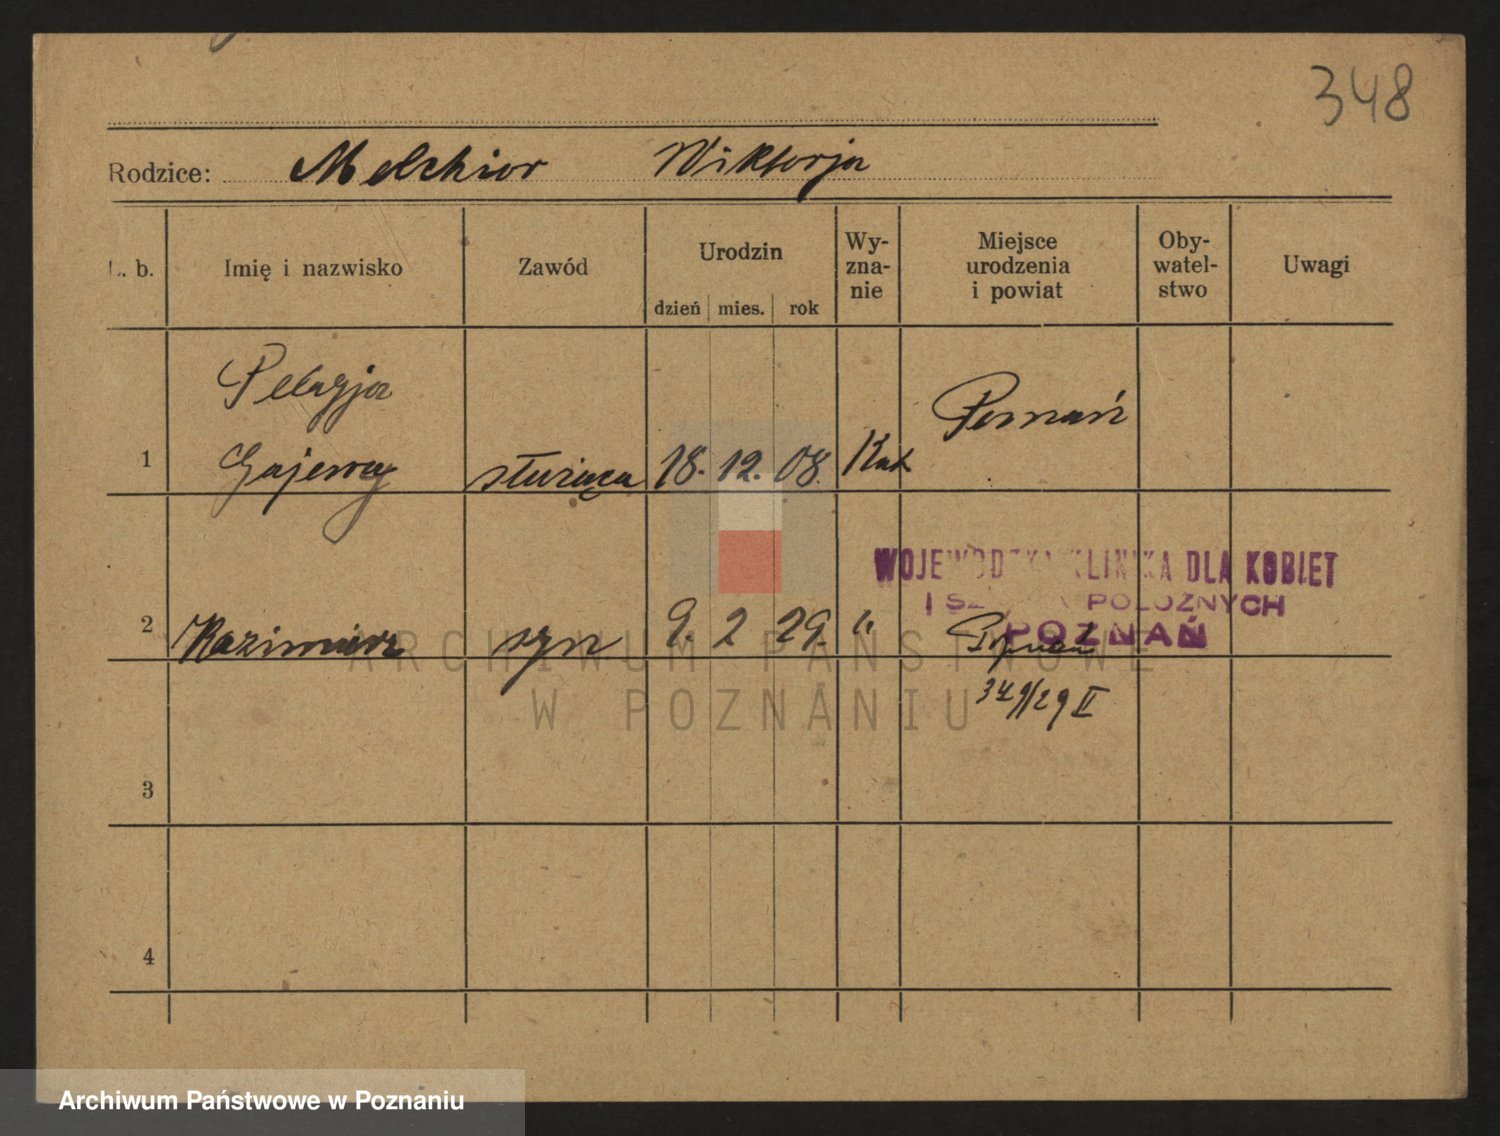 348
Rodzice: Melchior Wiktorja
L. b. Imię i nazwisko Zawód Urodzin dzień mies. rok Wy-zna-nie Miejsce urodzenia i powiat Oby-watel-stwo Uwagi
Pelagja
1 służąca 18. 12. 08. Kat Poznań
WOJEWÓDZKA KLINIKA DLA KOBIET
I POŁOŻNYCH
POZNAŃ
2 Kazimierz syn 9. 2 29. " Poznań
349/29 II
3
4
ARCHIWUM PAŃSTWOWE
W POZNANIU
Archiwum Państwowe w Poznaniu